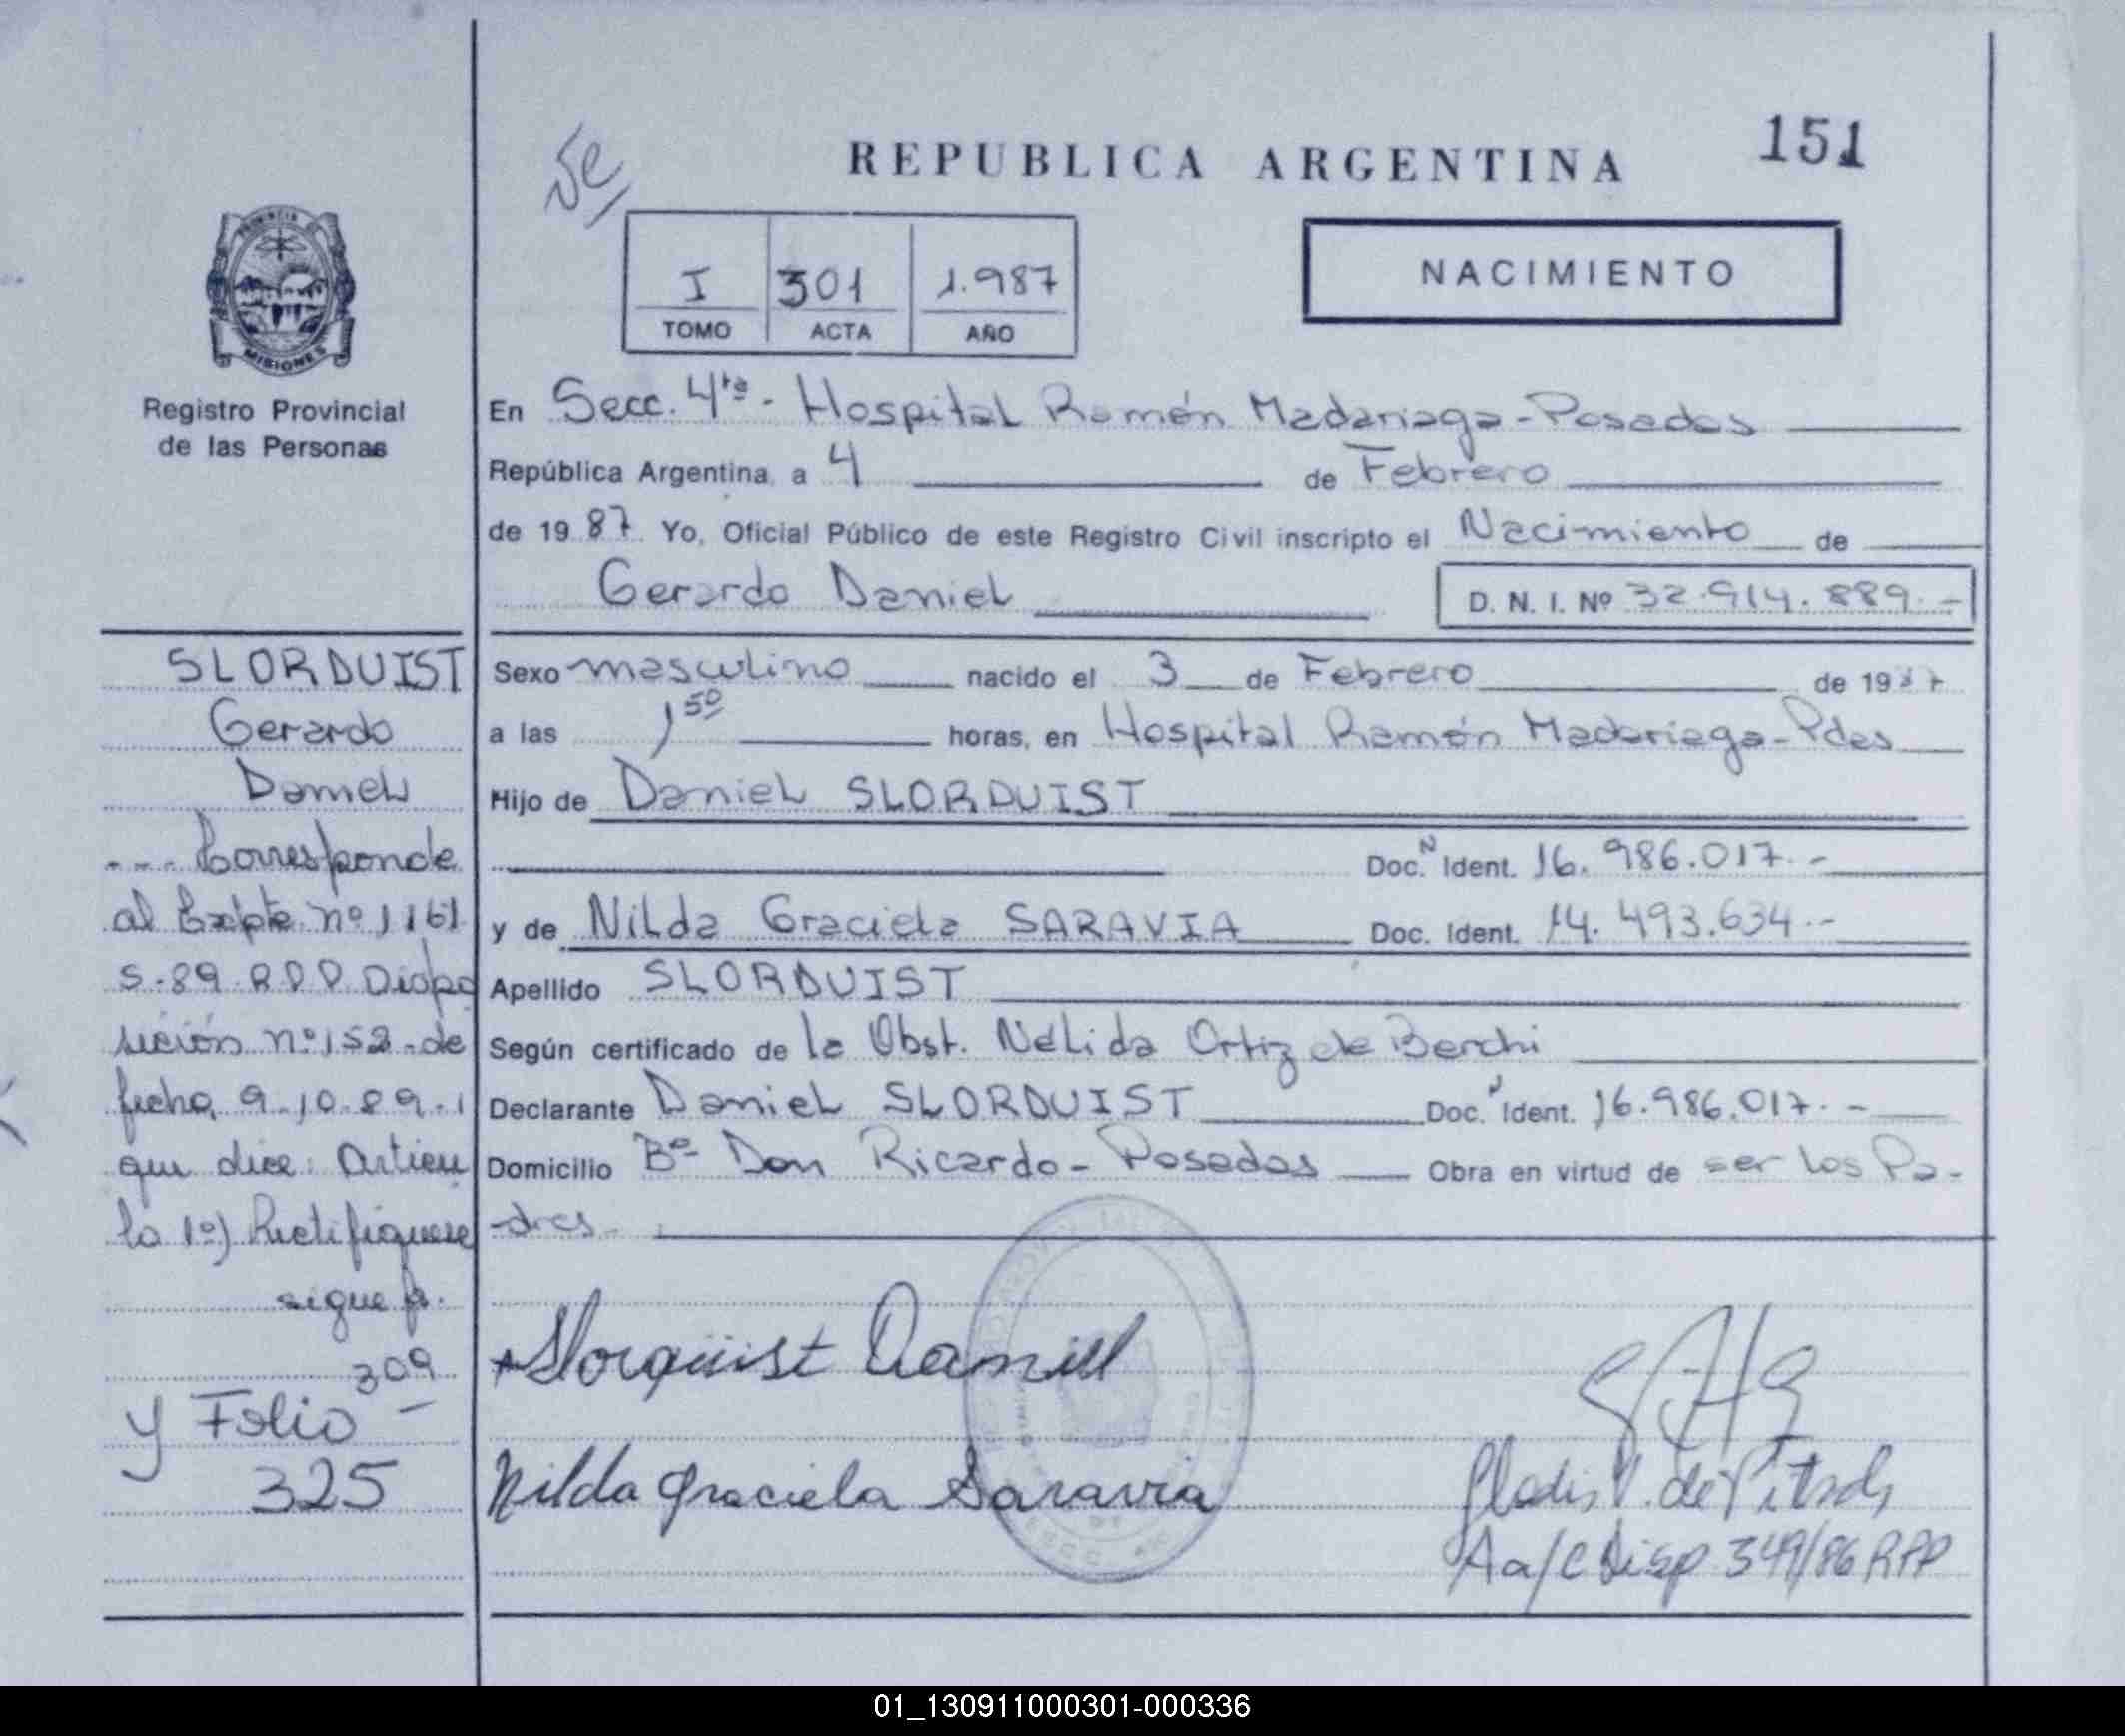 151
REPUBLICA ARGENTINA
NACIMIENTO
I 301 1.987
TOMO ACTA AÑO
PROVINCIA
MISIONES
Registro Provincial
de las Personas
En Secc. 4ta - Hospital Ramón Madariaga - Posadas
República Argentina, a 4 de Febrero
de 1987 Yo, Oficial Público de este Registro Civil inscripto el Nacimiento de
Gerardo Daniel D. N. I. Nº 32.914.889.-
Sexo masculino nacido el 3 de Febrero de 1987
a las 1 50 horas, en Hospital Ramón Madariaga - Pdas
Hijo de Daniel SLORQUIST
Doc. Ident. 16.986.017.-
y de Nilda Graciela SARAVIA Doc. Ident. 14.493.634.-
Apellido SLORQUIST
Según certificado de la Obst. Nélida Ortiz de Berchi
Declarante Daniel SLORQUIST Doc. Ident. 16.986.017.-
Domicilio Bº Don Ricardo - Posadas Obra en virtud de ser los Pa-
-dres
SLORQUIST
Gerardo
Daniel
Corresponde
al Expte nº 1161
S-89-RPP Dispo
sición nº 152 de
fecha 9.10.89.
que dice: Artícu
lo 1º) Rectifíquese
sigue fº.
309
y Folio
325
Slorqüist Daniel
Nilda Graciela Saravia
A a/c Disp 349/86 RPP
01_130911000301-000336